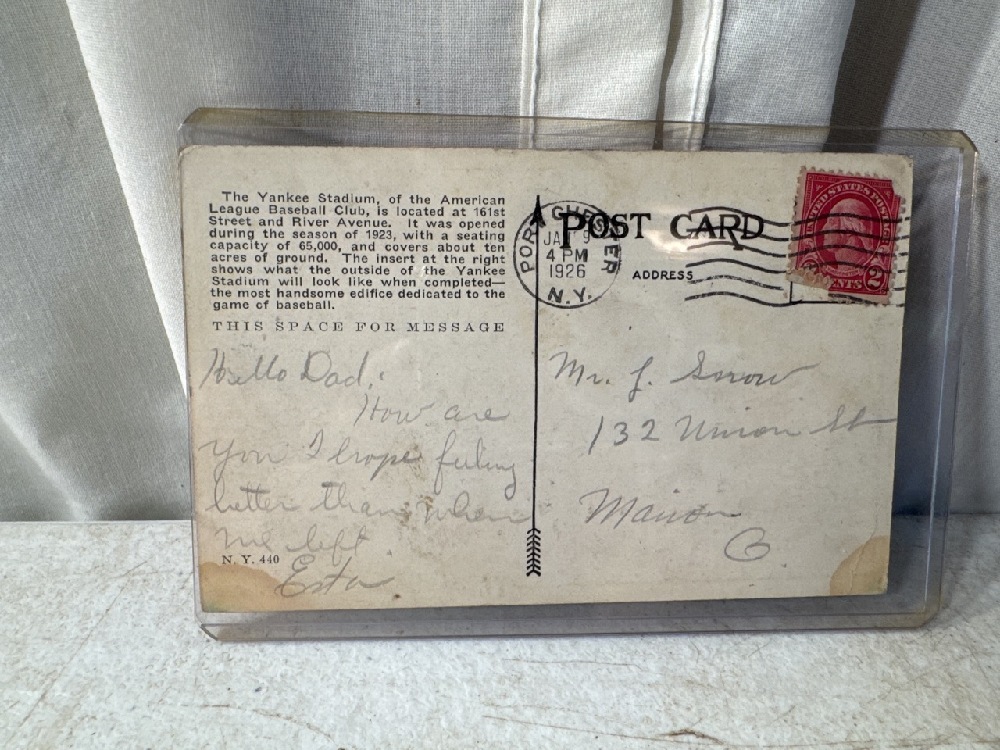 The Yankee Stadium, of the American
League Baseball Club, is located at 161st
Street and River Avenue. It was opened
during the season of 1923, with a seating
capacity of 65,000, and covers about ten
acres of ground. The insert at the right
shows what the outside of the Yankee
Stadium will look like when completed—
the most handsome edifice dedicated to the
game of baseball.
THIS SPACE FOR MESSAGE
Hello Dad.
How are
You I hope feeling
better than when
we left
N. Y. 440
PORT CHESTER
4 PM
1926
N.Y.
POST CARD
ADDRESS
UNITED STATES POSTAGE
CENTS 2
Mr. J. Snow
132 Union St
O.